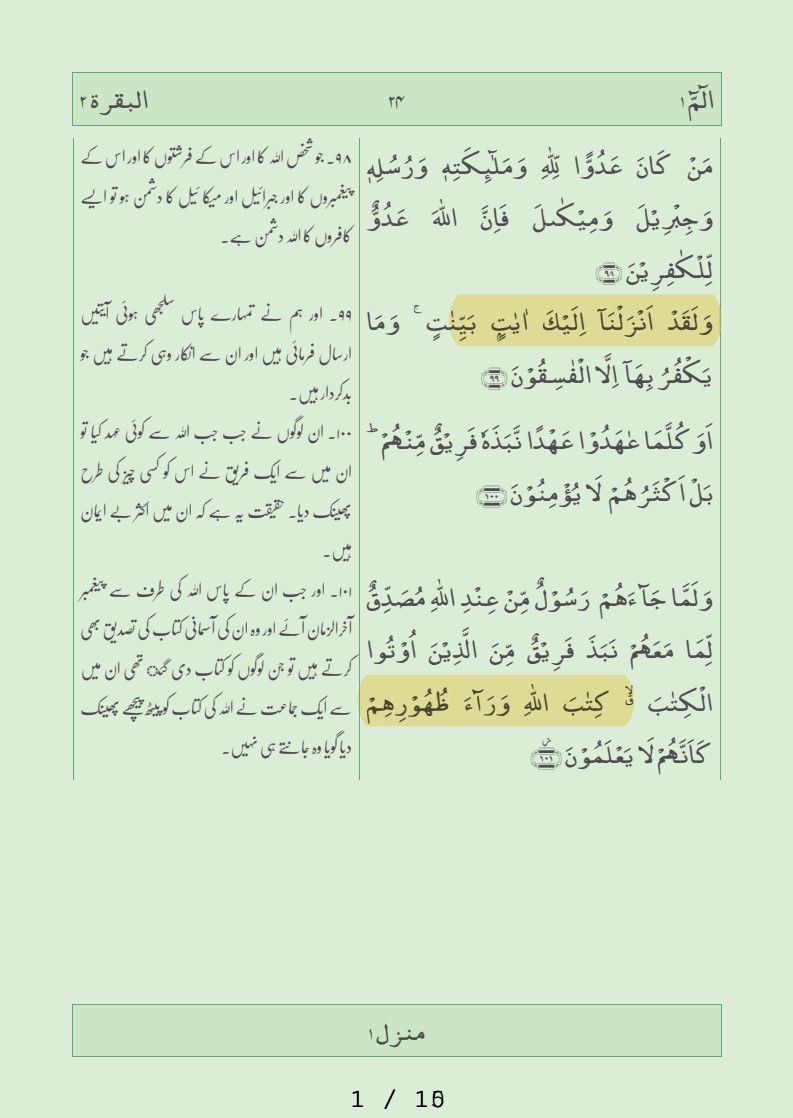 الٓمّٓ ۱ ۲۴ البقرة ۲
مَنْ كَانَ عَدُوًّا لِّلّٰهِ وَمَلٰٓئِكَتِهٖ وَرُسُلِهٖ
وَجِبْرِيْلَ وَمِيْكٰىلَ فَاِنَّ اللّٰهَ عَدُوٌّ
لِّلْكٰفِرِيْنَ ۹۸
وَلَقَدْ اَنْزَلْنَآ اِلَيْكَ اٰيٰتٍۭ بَيِّنٰتٍ ۚ وَمَا
يَكْفُرُ بِهَآ اِلَّا الْفٰسِقُوْنَ ۹۹
اَوَكُلَّمَا عٰهَدُوْا عَهْدًا نَّبَذَهٗ فَرِيْقٌ مِّنْهُمْ ؕ
بَلْ اَكْثَرُهُمْ لَا يُؤْمِنُوْنَ ۱۰۰
وَلَمَّا جَآءَهُمْ رَسُوْلٌ مِّنْ عِنْدِ اللّٰهِ مُصَدِّقٌ
لِّمَا مَعَهُمْ نَبَذَ فَرِيْقٌ مِّنَ الَّذِيْنَ اُوْتُوا
الْكِتٰبَ ۙۗ كِتٰبَ اللّٰهِ وَرَآءَ ظُهُوْرِهِمْ
كَاَنَّهُمْ لَا يَعْلَمُوْنَ ۱۰۱
۹۸۔ جو شخص اللہ کا اور اس کے فرشتوں کا اور اس کے
پیغمبروں کا اور جبرائیل اور میکائیل کا دشمن ہو تو ایسے
کافروں کا اللہ دشمن ہے۔
۹۹۔ اور ہم نے تمہارے پاس سلجھی ہوئی آیتیں
ارسال فرمائی ہیں اور ان سے انکار وہی کرتے ہیں جو
بدکردار ہیں۔
۱۰۰۔ ان لوگوں نے جب جب اللہ سے کوئی عہد کیا تو
ان میں سے ایک فریق نے اس کو کسی چیز کی طرح
پھینک دیا۔ حقیقت یہ ہے کہ ان میں اکثر بے ایمان
ہیں۔
۱۰۱۔ اور جب ان کے پاس اللہ کی طرف سے پیغمبر
آخرالزمان آئے اور وہ ان کی آسمانی کتاب کی تصدیق بھی
کرتے ہیں تو جن لوگوں کو کتاب دی تھی ان میں
سے ایک جماعت نے اللہ کی کتاب کو پیٹھ پیچھے پھینک
دیا گویا وہ جانتے ہی نہیں۔
منزل ۱
1 /